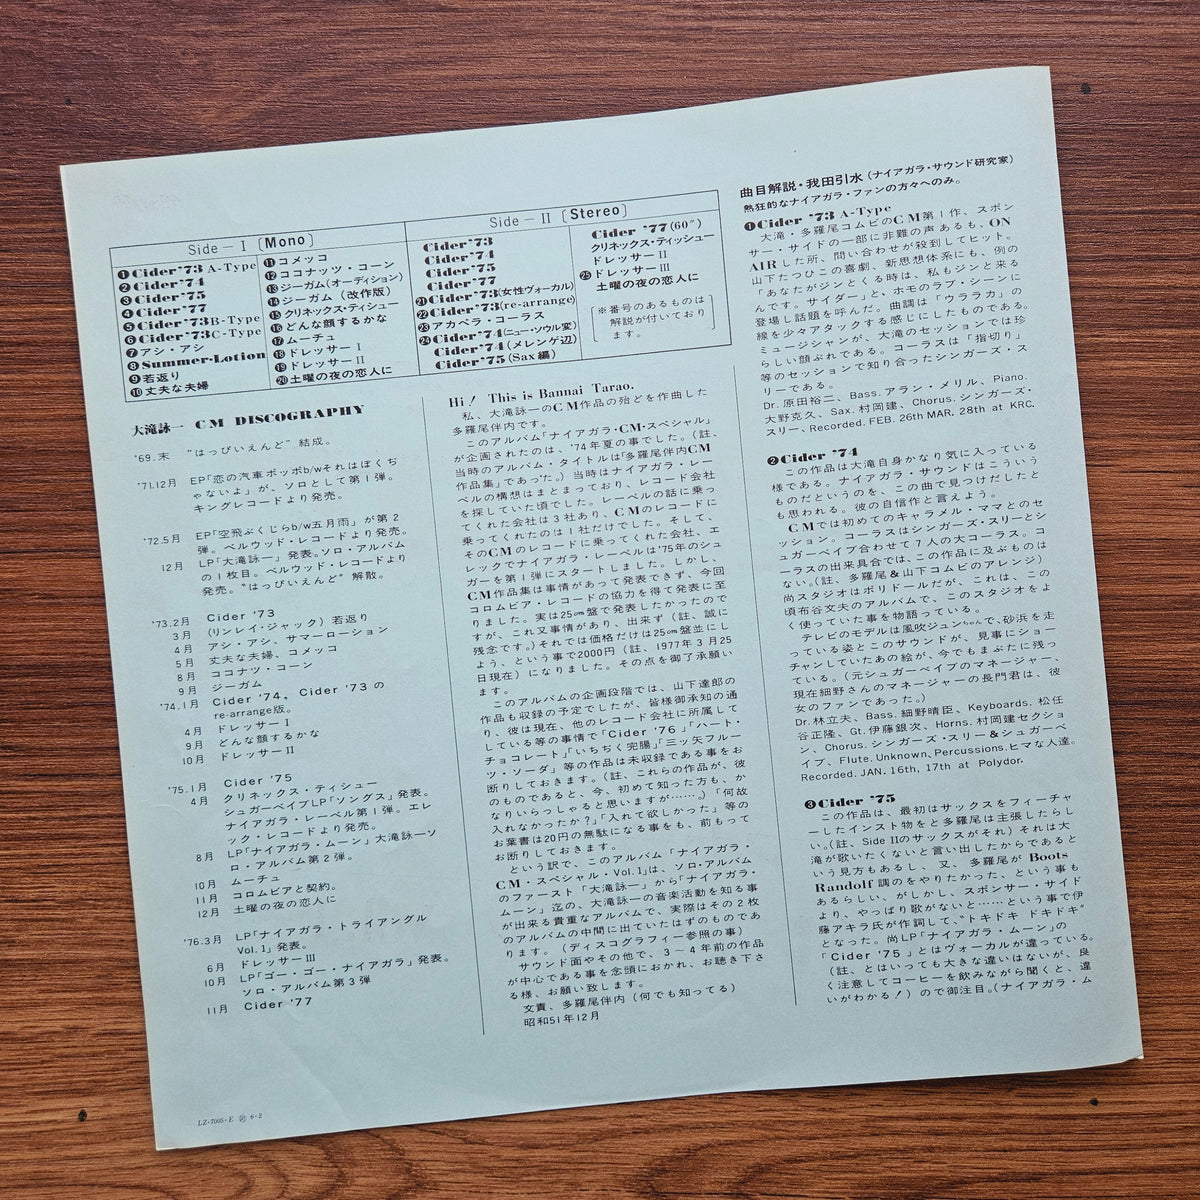 Side-Ⅰ〔Mono〕
❶Cider '73 A-Type
❷Cider '74
❸Cider '75
❹Cider '77
❺Cider '73 B-Type
❻Cider '73 C-Type
❼アシ・アシ
❽Summer・Lotion
❾若返り
❿丈夫な夫婦
⓫コメッコ
⓬ココナッツ・コーン
⓭ジーガム(オーディション)
⓮ジーガム (改作版)
⓯クリネックス・ティシュー
⓰どんな顔するかな
⓱ムーチュ
⓲ドレッサーⅠ
⓳ドレッサーⅡ
⓴土曜の夜の恋人に
Side-Ⅱ〔Stereo〕
Cider '73
Cider '74
Cider '75
Cider '77
㉑Cider '73(女性ヴォーカル)
㉒Cider '73(re-arrange)
㉓アカペラ・コーラス
㉔Cider '74(ニュー・ソウル変)
Cider '74(メレンゲ辺)
Cider '75(Sax編)
Cider '77(60″)
クリネックス・ティッシュー
ドレッサーⅡ
㉕ドレッサーⅢ
土曜の夜の恋人に
※番号のあるものは
解説が付いており
ます。
大滝詠一 CM DISCOGRAPHY
'69.末 “はっぴいえんど”結成。
'71.12月 EP「恋の汽車ポッポb/wそれはぼくぢ
ゃないよ」が、ソロとして第1弾。
キングレコードより発売。
'72.5月 EP「空飛ぶくじらb/w五月雨」が第2
弾。ベルウッド・レコードより発売。
12月 LP「大滝詠一」発表。ソロ・アルバム
の1枚目。ベルウッド・レコードより
発売。“はっぴいえんど”解散。
'73.2月 Cider '73
3月 (リンレイ・ジャック) 若返り
4月 アシ・アシ、サマーローション
5月 丈夫な夫婦、コメッコ
8月 ココナツ・コーン
9月 ジーガム
'74.1月 Cider '74, Cider '73 の
re-arrange版。
4月 ドレッサーⅠ
9月 どんな顔するかな
10月 ドレッサーⅡ
'75.1月 Cider '75
4月 クリネックス・ティシュー
シュガーベイブLP「ソングス」発表。
ナイアガラ・レーベル第1弾。エレ
ック・レコードより発売。
8月 LP「ナイアガラ・ムーン」大滝詠一ソ
ロ・アルバム第2弾。
10月 ムーチュ
11月 コロムビアと契約。
12月 土曜の夜の恋人に
'76.3月 LP「ナイアガラ・トライアングル
Vol.1」発表。
6月 ドレッサーⅢ
10月 LP「ゴー・ゴー・ナイアガラ」発表。
ソロ・アルバム第3弾
11月 Cider '77
LZ-7005-E 6・2
Hi! This is Bannai Tarao.
私、大滝詠一のCM作品の殆どを作曲した
多羅尾伴内です。
このアルバム「ナイアガラ・CM・スペシャル」
が企画されたのは、'74年夏の事でした。(註、
当時のアルバム・タイトルは「多羅尾伴内CM
作品集」であった。) 当時はナイアガラ・レー
ベルの構想はまとまっており、レコード会社
を探していた頃でした。レーベルの話に乗っ
てくれた会社は3社あり、CMのレコードに
乗ってくれたのは1社だけでした。そして、
そのCMのレコードに乗ってくれた会社、エ
レックでナイアガラ・レーベルは'75年のシュ
ガーを第1弾にスタートしました。しかし、
CM作品集は事情があって発表できず、今回
コロムビア・レコードの協力を得て発表に至
りました。実は25㎝盤で発表したかったので
すが、これ又事情があり、出来ず(註、誠に
残念です。)それでは価格だけは25㎝盤並にし
よう、という事で2000円(註、1977年3月25
日現在)になりました。その点を御了承願い
ます。
このアルバムの企画段階では、山下達郎の
作品も収録の予定でしたが、皆様御承知の通
り、彼は現在、他のレコード会社に所属して
している等の事情で「Cider '76」「ハート・
チョコレート」「いちぢく完腸」「三ッ矢フルー
ツ・ソーダ」等の作品は未収録である事をお
断りしておきます。(註、これらの作品が、彼
のものであると、今、初めて知った方も、か
なりいらっしゃると思いますが……。)「何故
入れなかったか?」「入れて欲しかった」等の
お葉書は20円の無駄になる事をも、前もって
お断りしておきます。
という訳で、このアルバム「ナイアガラ・
CM・スペシャル・Vol.1」は、ソロ・アルバム
のファースト「大滝詠一」から「ナイアガラ・
ムーン」迄の、大滝詠一の音楽活動を知る事
が出来る貴重なアルバムで、実際はその2枚
のアルバムの中間に出ていたはずのものであ
ります。 (ディスコグラフィー参照の事)
サウンド面やその他で、3~4年前の作品
が中心である事を念頭におかれ、お聴き下さ
る様、お願い致します。
文責、多羅尾伴内(何でも知ってる)
昭和51年12月
曲目解説・我田引水(ナイアガラ・サウンド研究家)
熱狂的なナイアガラ・ファンの方々へのみ。
❶Cider '73 A-Type
大滝・多羅尾コムビのCM第1作、スポン
サー・サイドの一部に非難の声あるも、ON
AIRした所、問い合わせが殺到してヒット。
山下たつひこの喜劇、新思想体系にも、例の
「あなたがジンとくる時は、私もジンと来る
んです。サイダー」と、ホモのラブ・シーンに
登場し話題を呼んだ。曲調は「ウララカ」の
線を少々アタックする感じにしたものである。
ミュージシャンが、大滝のセッションでは珍
らしい顔ぶれである。コーラスは「指切り」
等のセッションで知り合ったシンガーズ・ス
リーである。
Dr. 原田裕二、Bass. アラン・メリル、Piano.
大野克久、Sax. 村岡建、Chorus. シンガーズ・
スリー、Recorded. FEB. 26th MAR. 28th at KRC.
❷Cider '74
この作品は大滝自身かなり気に入っている
様である。ナイアガラ・サウンドはこういう
ものだというのを、この曲で見つけだしたと
も思われる。彼の自信作と言えよう。
CMでは初めてのキャラメル・ママとのセ
ッション。コーラスはシンガーズ・スリーとシ
ュガーベイブ合わせて7人の大コーラス。コ
ーラスの出来具合では、この作品に及ぶものは
ない。(註、多羅尾&山下コムビのアレンジ)
尚スタジオはポリドールだが、これは、この
頃布谷文夫のアルバムで、このスタジオをよ
く使っていた事を物語っている。
テレビのモデルは風吹ジュンちゃんで、砂浜を走
っている姿とこのサウンドが、見事にショー
チャンしていたあの絵が、今でもまぶたに残っ
ている。(元シュガーベイブのマネージャー、
現在細野さんのマネージャーの長門君は、彼
女のファンであった。)
Dr. 林立夫、Bass. 細野晴臣、Keyboards. 松任
谷正隆、Gt. 伊藤銀次、Horns. 村岡建セクショ
ン、Chorus. シンガーズ・スリー&シュガーベ
イブ、Flute. Unknown, Percussions. ヒマな人達。
Recorded. JAN. 16th, 17th at Polydor.
❸Cider '75
この作品は、最初はサックスをフィーチャ
ーしたインスト物をと多羅尾は主張したらし
い。(註、Side Ⅱのサックスがそれ) それは大
滝が歌いたくないと言い出したからであると
いう見方もあるし、又、多羅尾が Boots
Randolf 調のをやりたかった、という事も
あるらしい、がしかし、スポンサー・サイド
より、やっぱり歌がないと……という事で伊
藤アキラ氏が作詞して、“トキドキ ドキドキ”
となった。尚LP「ナイアガラ・ムーン」の
「Cider '75」とはヴォーカルが違っている。
(註、とはいっても大きな違いはないが、良
く注意してコーヒーを飲みながら聞くと、違
いがわかる!) ので御注目。(ナイアガラ・ム